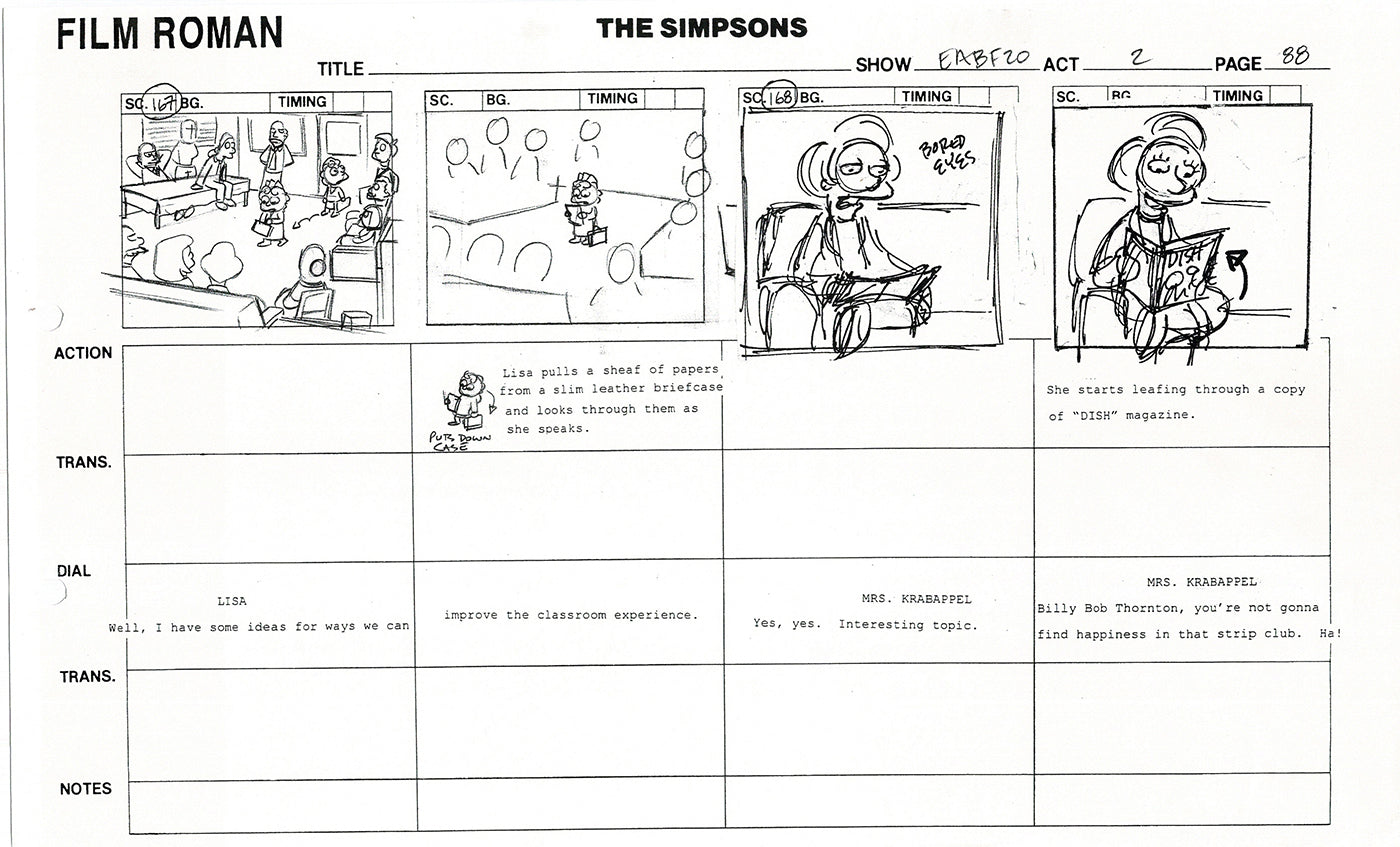 FILM ROMAN
THE SIMPSONS
TITLE SHOW EABF20 ACT 2 PAGE 88
SC. 167 BG. TIMING
SC. BG. TIMING
SC. 168 BG. TIMING
SC. BG TIMING
BORED
EYES
DISH
ACTION
Lisa pulls a sheaf of papers
from a slim leather briefcase
and looks through them as
she speaks.
PUTS DOWN
CASE
She starts leafing through a copy
of “DISH” magazine.
TRANS.
DIAL
LISA
Well, I have some ideas for ways we can
improve the classroom experience.
MRS. KRABAPPEL
Yes, yes. Interesting topic.
MRS. KRABAPPEL
Billy Bob Thornton, you’re not gonna
find happiness in that strip club. Ha!
TRANS.
NOTES